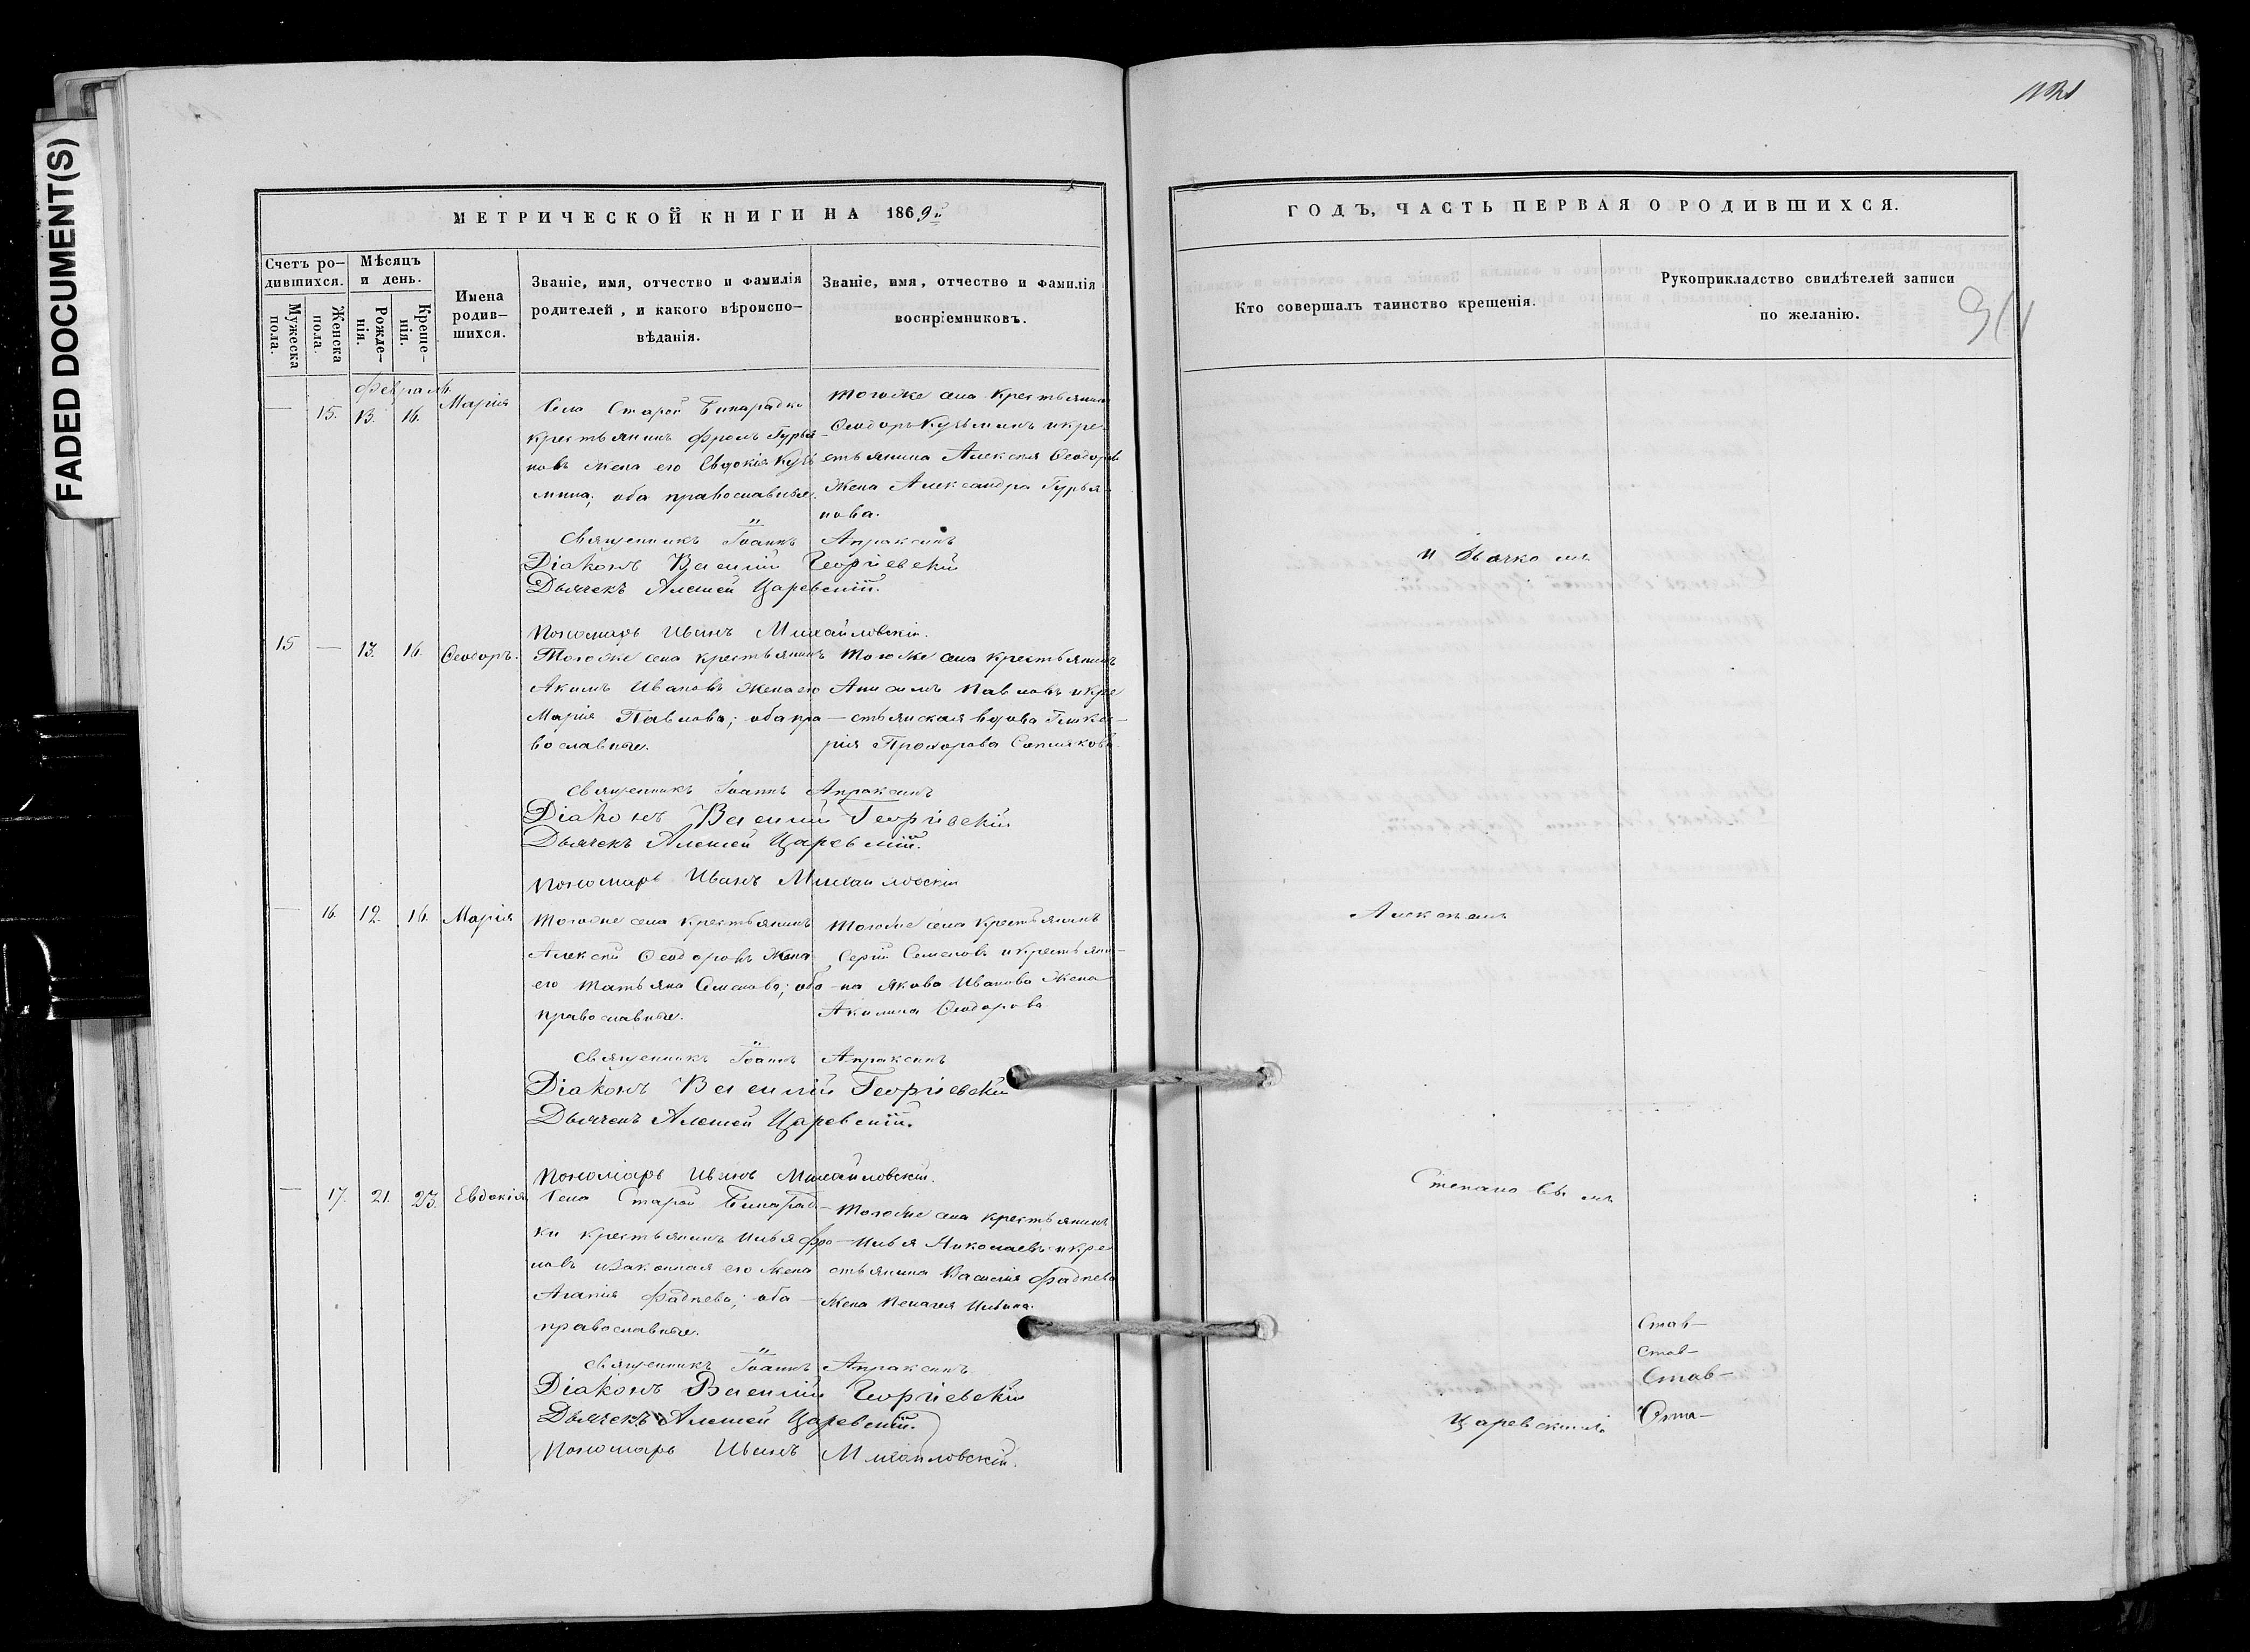 FADED DOCUMENT(S)
МЕТРИЧЕСКОЙ КНИГИ НА 1869й
Счетъ ро-
дившихся.
Мужеска
пола.
Женска
пола.
Мѣсяцъ
и день.
Рожде-
нія.
Креще-
нія.
Имена
родив-
шихся.
Званіе, имя, отчество и фамилія
родителей, и какого вѣроиспо-
вѣданія.
Званіе, имя, отчество и фамилія
воспріемниковъ.
Февраль
— 15. 13. 16. Марія
Села Старой Бинарадки
крестьянинъ Фролъ Гурья-
новъ жена его Евдокія Кузь
мина; оба православные.
Тогоже села крестьянинъ
Ѳеодоръ Кузьминъ и кре-
стьянина Алексѣя Ѳеодорова
жена Александра Гурья-
нова.
Священникъ Іоаннъ Апраксинъ
Діаконъ Василій Георгіевскій
Дьячекъ Алексѣй Царевскій.
Пономарь Иванъ Михайловскій.
15 — 13. 16. Ѳеодоръ.
Тогоже села крестьянинъ
Акимъ Ивановъ жена его
Марія Павлова; оба пра-
вославные.
Тогоже села крестьянинъ
Анисимъ Павловъ и кре
стьянская вдова Глике-
рія Прохорова
Священникъ Іоаннъ Апраксинъ
Діаконъ Василій Георгіевскій
Дьячекъ Алексѣй Царевскій.
Пономарь Иванъ Михайловскій
— 16. 12. 16. Марія
Тогоже села крестьянинъ
Алексѣй Ѳеодоровъ жена
его Татьяна Семенова; оба
православные.
Тогоже села крестьянинъ
Сергій Семеновъ и крестьяни-
на Якова Иванова жена
Акилина Ѳеодорова
Священникъ Іоаннъ Апраксинъ
Діаконъ Василій Георгіевскій
Дьячекъ Алексѣй Царевскій.
Пономарь Иванъ Михайловскій.
— 17. 21. 23. Евдокія
Села Старой Бинарад-
ки крестьянинъ Илья Фро-
ловъ и законная его жена
Агапія Фадѣева; оба
православные.
Тогоже села крестьянинъ
Илья Николаевъ и кре
стьянина Василія Фадѣева
жена Пелагея Ильина.
Священникъ Іоаннъ Апраксинъ
Діаконъ Василій Георгіевскій
Дьячекъ Алексѣй Царевскій.
Пономарь Иванъ Михайловскій.
ГОДЪ, ЧАСТЬ ПЕРВАЯ О РОДИВШИХСЯ.
Кто совершалъ таинство крещенія.
Рукоприкладство свидѣтелей записи
по желанію.
Алексѣемъ
Став-
Став-
Став-
Царевскимъ